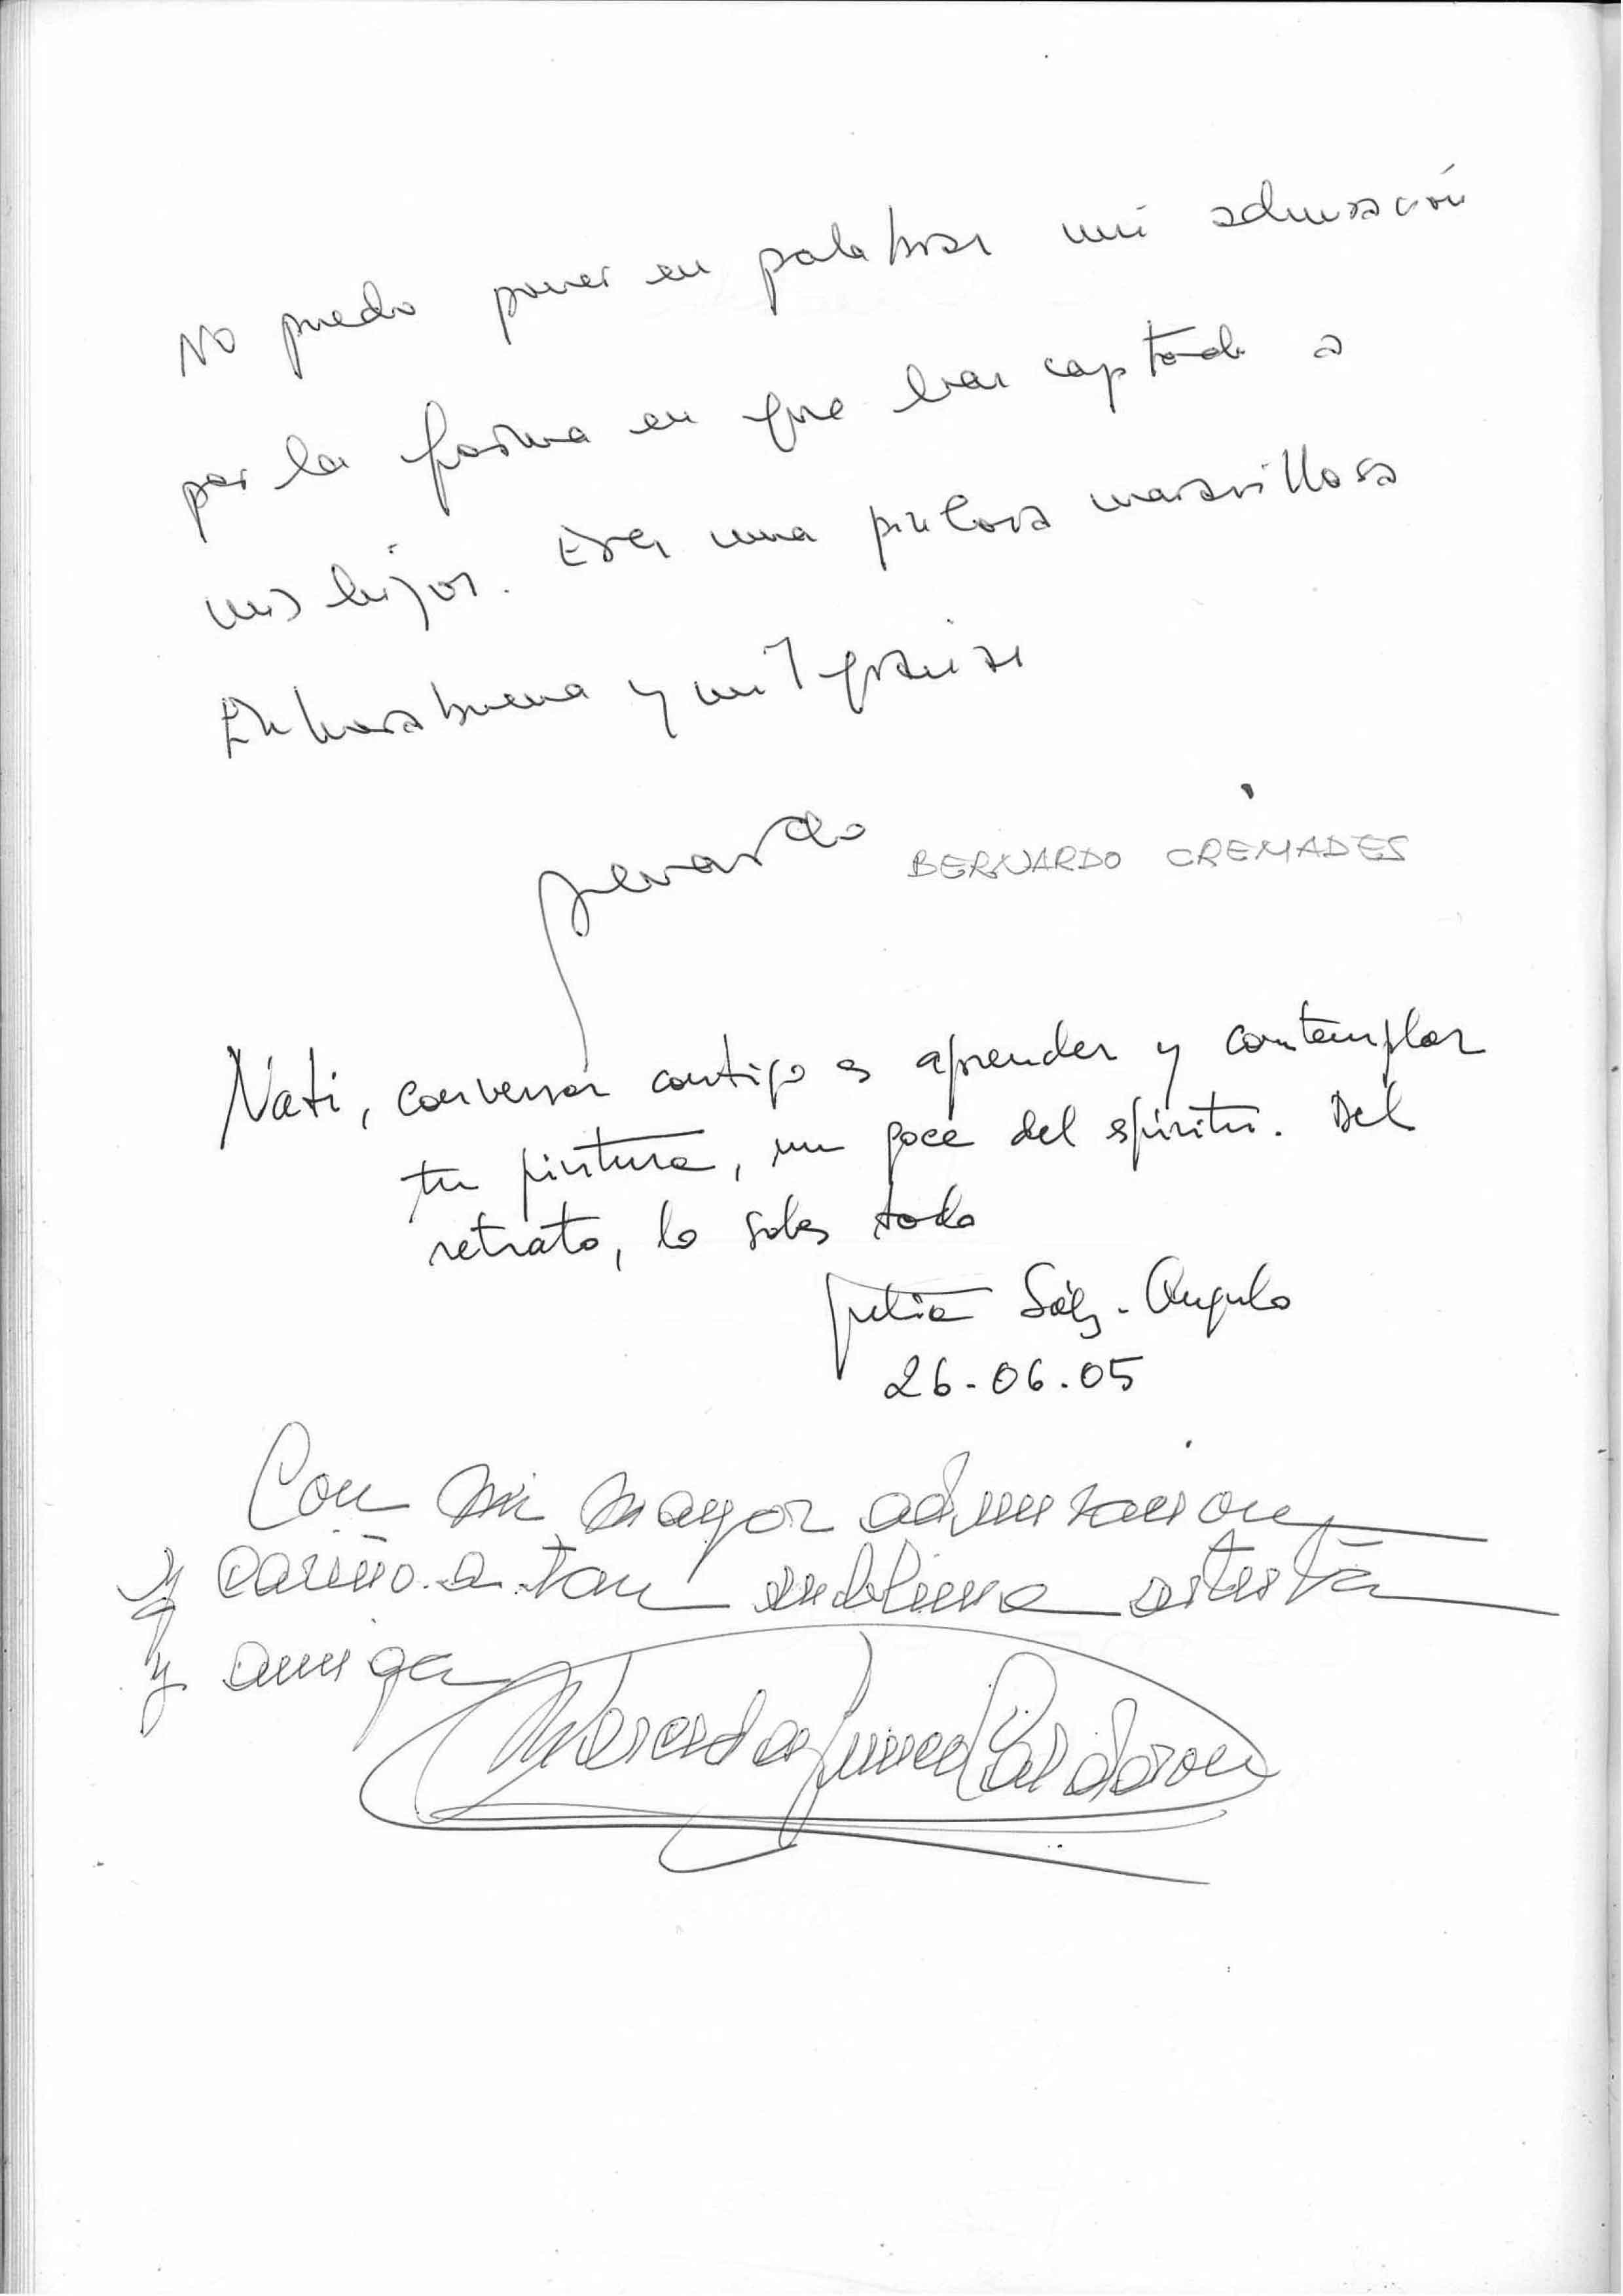 No puedo poner en palabras mi admiración
por la forma en que has captado a
mis hijos. Eres una pintora maravillosa
Enhorabuena y mil gracias
Bernardo BERNARDO CREMADES
Nati, conversar contigo es aprender y contemplar
tu pintura, un goce del espíritu. Del
retrato, lo sabes todo
Julia Sáez-Angulo
26-06-05
Con mi mayor admiracion
y cariño a tan sublime artista
y amiga
Mercedes Calderon